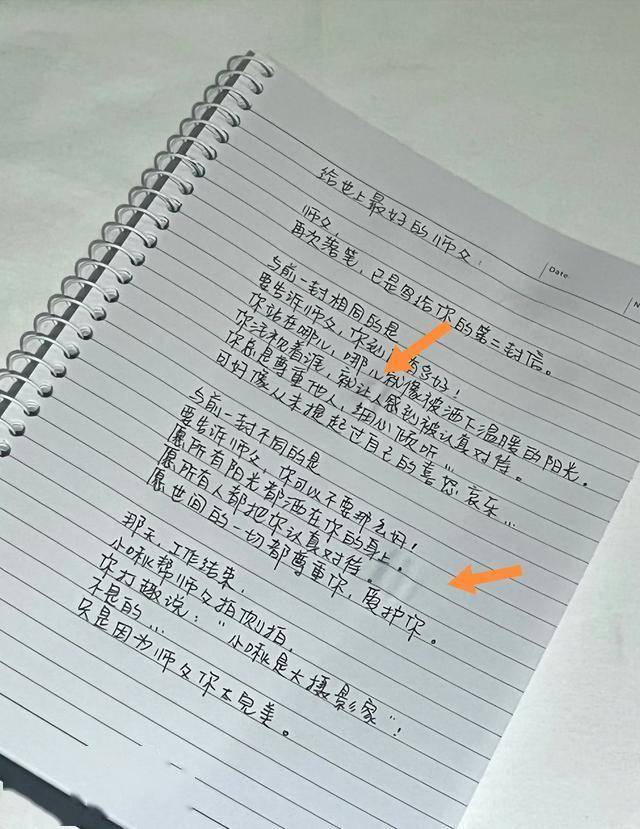 Date.
N
给世上最好的师父：
师父，
再次落笔，已是写给你的第二封信。
与前一封相同的是
要告诉师父，你到 有多好！
你站在哪儿，哪儿就像被洒下温暖的阳光。
你浅祝着涯，就让人感到被认真对待。
你总是尊重他人，细心倾听…
可好像从未提起过自己的喜怒哀乐…
与前一封不同的是
要告诉师父，你可以不要那么好！
愿所有阳光都洒在你的身上。
愿所有人都把你认真对待。
愿世间的一切都尊重你，爱护你。
那天，工作结束，
小啾帮师父拍侧拍，
你打趣说：“小啾是大摄影家”！
不是的…
只是因为师父你太完美。